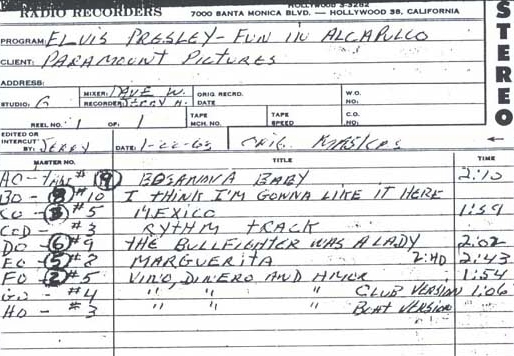 HOLLYWOOD 3-3282
RADIO RECORDERS 7000 SANTA MONICA BLVD. — HOLLYWOOD 38, CALIFORNIA
STEREO
PROGRAM: ELVIS PRESLEY - FUN IN ALCAPULCO
CLIENT: PARAMOUNT PICTURES
ADDRESS:
STUDIO: G MIXER: DAVE W. ORIG. RECRD. DATE W.O. NO:
RECORDER: JERRY H.
REEL NO. 1 OF: 1 TAPE MCH. NO. TAPE SPEED C.O. NO:
EDITED OR INTERCUT BY: JERRY DATE: 1-22-63 ORIG. MASTERS ←
MASTER NO. TITLE TIME
AO - (9) BOSANOVA BABY 2:10
BO - (8) #10 I THINK I'M GONNA LIKE IT HERE
CO - #5 MEXICO 1:59
#3 RYTHM TRACK
DO - (6) #9 THE BULLFIGHTER WAS A LADY 2:02
EO - (5) #2 MARGUERITA 2:40 2:43
FO - (2) #5 VINO, DINERO AND AMOR 1:54
GO - #4 " " " CLUB VERSION 1:06
HO - #3 " " " BOAT VERSION